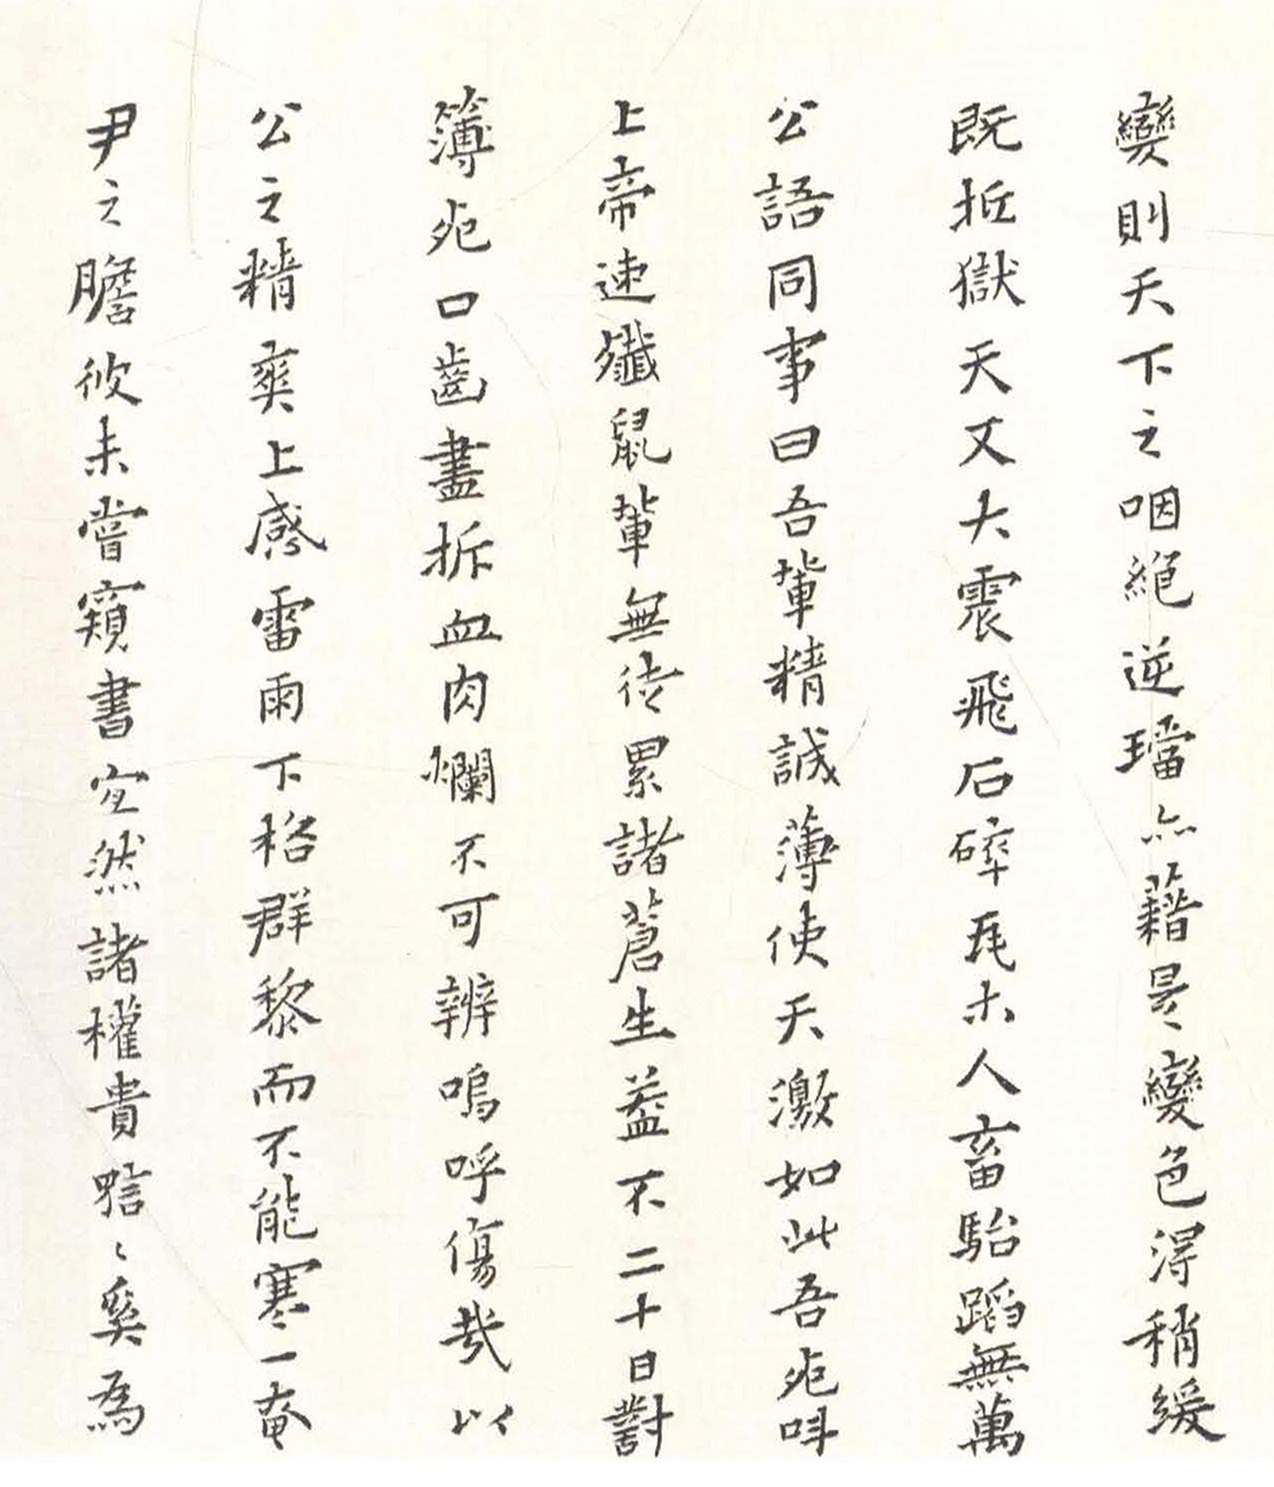 變則天下之咽絕逆璫亦藉是變色得稍緩
既抵獄天又大震飛石碎瓦木人畜駘蹈無萬
公語同事曰吾輩精誠薄使天激如此吾死叫
上帝速殲鼠輩無徒累諸蒼生益不二十日對
簿死口齒盡拆血肉爛不可辨嗚呼傷哉以
公之精爽上感雷雨下格群黎而不能寒一奄
尹之膽彼未嘗窺書宜然諸權貴䛩〻奚為